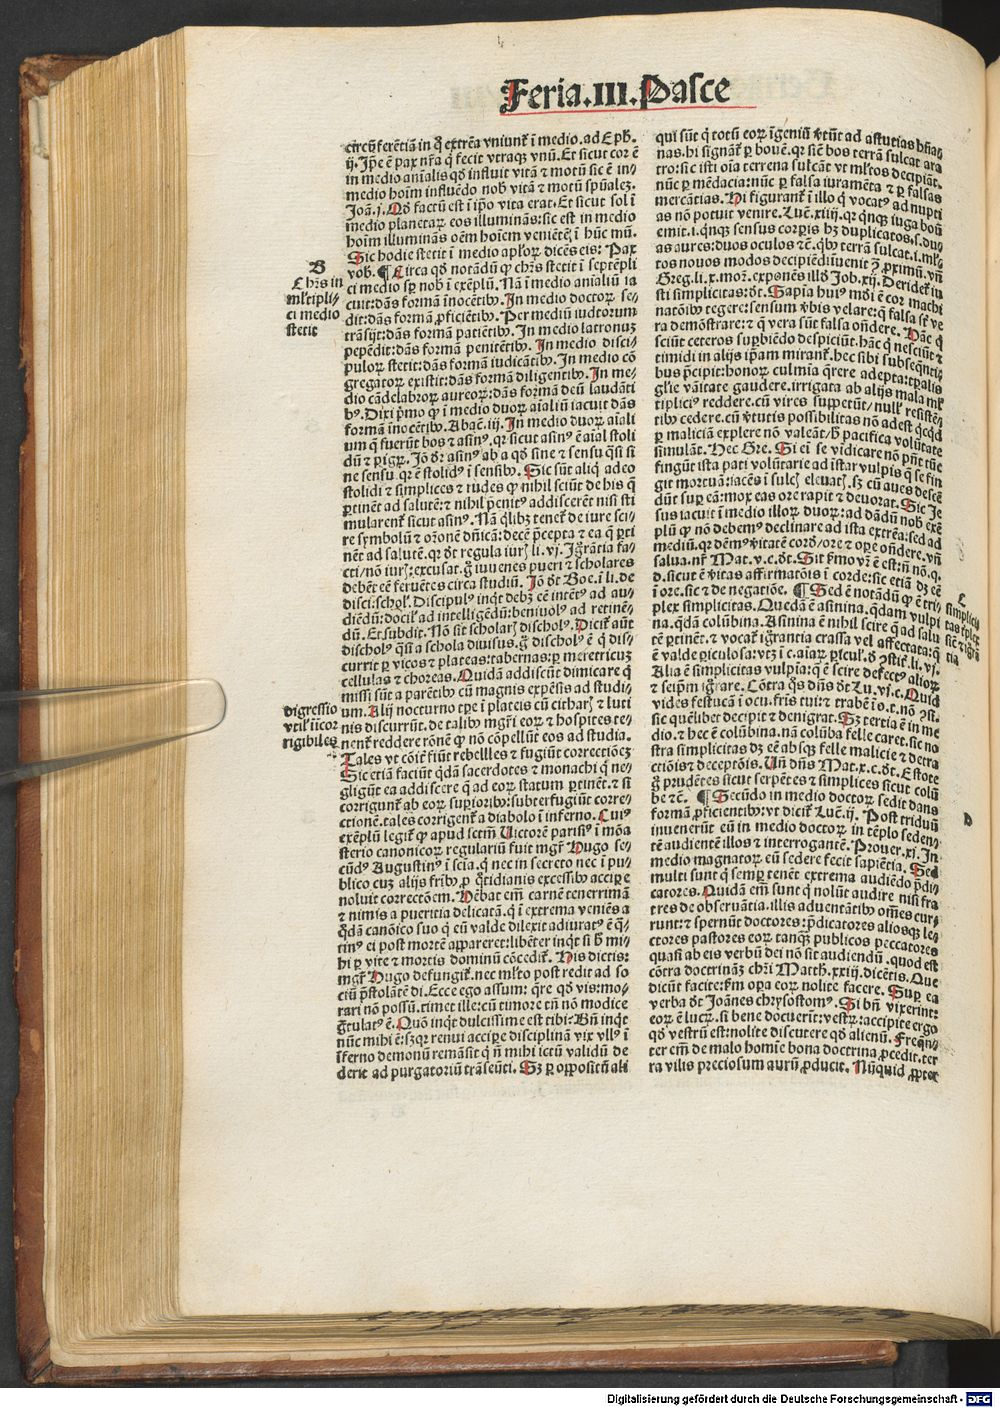 Feria.III.Pasce
circūferētiā in q̄ extrēa vniunt᷑ ī medio.ad Eph̄.
ij. Ip̄e ē pax nr̄a q̇ fecit vtraqꝫ vnū. Et sicut cor ē
in medio aīalis qd̄ influit vitā ⁊ motū sic ē in⸗
medio hoīm influēdo nob̄ vitā ⁊ motū spūalez.
Joā.j. Qd̄ factū est ī ip̄o vita erat. Et sicut sol ī
medio planetaꝝ eos illuminās: sic est in medio
hoīm illuminās oēm hoīem veniētē ī hūc mū.
Sic hodie stetit ī medio apl'oꝝ dicēs eis: Pax
vob̄. ¶ Circa qd̄ notādū ꝙ chr̄s stetit ī septēpli
ci medio sꝑ nob̄ ī exēplū. Nā ī medio aīaliū ia
cuit: dās formā īnocētibꝰ. In medio doctoꝝ se⸗
dit: dās formā ꝓficiētibꝰ. Per mediū iudeorum
trāsijt: dās formā patiētibꝰ. In medio latronuꝫ
pepēdit: dās formā penitētibꝰ. In medio disci⸗
puloꝝ stetit: dās formā iudicātibꝰ. In medio cō
gregatoꝝ existit: dās formā diligentibꝰ. In me⸗
dio cādelabroꝝ aureoꝝ: dās formā deū laudāti
bꝰ. Dixi p̄mo ꝙ ī medio duoꝝ aīaliū iacuit dās
formā īnocētibꝰ. Abac̄.iij. In medio duoꝝ aīali
um q̄ fuerūt bos ⁊ asinꝰ. qꝛ sicut asinꝰ ē aīal stoli
dū ⁊ pigꝝ. Iō dr̄ asinꝰ ab a qd̄ sine ⁊ sensu q̄si si
ne sensu. qꝛ ē stolidꝰ ī sensibꝰ. Sic sūt aliq̇ adeo
stolidi ⁊ simplices ⁊ rudes ꝙ nihil sciūt de his q̄
ꝑtinēt ad salutē: ⁊ nihil penitꝰ addiscerēt nisi sti
mularent᷑ sicut asinꝰ. Nā q̇libꝫ tenet᷑ de iure sci⸗
re symbolū ⁊ orōnē dn̄icā: decē p̄cepta ⁊ ea q̄ ꝑti
nēt ad salutē. qꝛ dt̄ regula iurꝭ li.vj. Iḡrātia fa⸗
cti/nō iurꝭ: excusat. ḡ iuuenes pueri ⁊ scholares
debēt eē feruētes circa studiū. Iō dt̄ Boe. ī li. de
disci: schol'. Discipulꝰ inqt̄ debꝫ eē intētꝰ ad au⸗
diēdū: docil' ad intelligēdū: beniuolꝰ ad retinē⸗
dū. Et subdit. Nō sit scholarꝭ discholꝰ. Dicit᷑ aūt
discholꝰ q̄si a schola diuisus. ḡ discholꝰ ē q̇ dis⸗
currit ꝑ vicos ⁊ plateas: tabernas: ꝑ meretricuꝫ
cellulas ⁊ choreas. Quidā addiscūt dimicare q̇
missi sūt a parētibꝰ cū magnis expēsis ad studi⸗
um. Alij nocturno tp̄e ī plateis cū citharꝭ ⁊ luti
nis discurrūt. de talibꝰ mgr̄i eoꝝ ⁊ hospites te⸗
nent᷑ reddere rōnē ꝙ nō cōpellūt eos ad studia.
Tales vt cōit̄ fiūt rebelles ⁊ fugiūt correctiōeꝫ
Sic etiā faciūt q̇dā sacerdotes ⁊ monachi q̇ ne⸗
gligūt ea addiscere q̄ ad eoꝝ statum ꝑtinēt. ⁊ si
corrigunt᷑ ab eoꝝ supioribꝰ: subterfugiūt corre⸗
ctionē. tales corrigent᷑ a diabolo ī inferno. Cuiꝰ
exēplū legit᷑ ꝙ apud sctm̄ Victorē parisiꝰ ī mōa
sterio canonicoꝝ regulariū fuit mgr̄ Hugo se⸗
cūdꝰ Augustinꝰ ī scīa. q̇ nec in secreto nec ī pu⸗
blico cuꝫ alijs fr̄ibꝰ ꝓ q̄tidianis excessibꝰ accipe
noluit correctōem. Debat em̄ carnē tenerrimā
⁊ nimis a pueritia delicatā. q̇ ī extrema veniēs a
q̇dā canōico suo q̇ eū valde dilexit adiuratꝰ ē q̄⸗
tinꝰ ei post mortē appareret: libēter inqt̄ si h̄ mi⸗
hi ꝑ vite ⁊ mortis dominū cōcedit᷑. His dictis:
mgr̄ Hugo defungit᷑. nec ml'to post redit ad so
ciū p̄stolātē di. Ecce ego assum: q̄re qd̄ vis: mo⸗
rari nō possū. timet ille: cū timore tn̄ nō modice
ḡtulatꝰ ē. Quō inqt̄ dulcissime est tibi? Bn̄ inqt̄
nūc mihi ē: sꝫ qꝛ renui accipe disciplinā vix vllꝰ ī
īferno demonū remāsit q̇ n̄ mihi ictū validū de
derit ad purgatoriū trāseūti. Sꝫ ꝑ oppositū ali
B
Chr̄s in
ml'tipli⸗
ci medio
stetit
digressio
vtil' ī icor
rigibiles
qui sūt q̇ totū eoꝝ īgeniū v̄tūt ad astutias hūa⸗
nas. hi signāt᷑ ꝑ bouē. qꝛ siē bos terrā sulcat ara
tro: sic isti oīa terrena sulcāt vt ml'tos decipiāt.
nūc ꝑ mēdacia: nūc ꝑ falsa iuramēta ⁊ ꝑ falsas
mercātias. Hi figurant᷑ ī illo q̇ vocatꝰ ad nupti
as nō potuit venire. Luc̄.xiiij. qꝛ qnqꝫ iuga boū
emit. i. qnqꝫ sensus corpis hꝫ duplicatos. s. du⸗
as aures: duos oculos ⁊c̄. qibꝰ terrā sulcat. i. ml'⸗
tos nouos modos decipiēdi īuenit ꝫ proximū. vn̄
Greg. li.x. moꝝ. exponēs illd̄ Job.xij. Deridet᷑ iu
sti simplicitas: dt̄. Sapīa huiꝰ mūdi ē cor machi
natōibꝰ tegere: sensum v̄bis velare: q̄ falsa st̄ ve
ra demōstrare: ⁊ q̄ vera sūt falsa on̄dere. Hāc q̇
sciūt ceteros supbiēdo despiciūt. hāc q̇ nesciūt ⁊
timidi in alijs ip̄am mirant᷑. hec sibi subseqntis
bus p̄cipit: honoꝝ culmia q̄rere adepta: tꝑalis
gl'ie vāitate gaudere. irrigata ab alijs mala ml'
tiplicius reddere. cū vires suppetūt/ null' resistē⸗
tibꝰ cedere. cū v̄tutis possibilitas nō adest q̇cqd̄
ꝑ maliciā explere nō valeāt/ h̄ pacifica volūtate
simulāt. Hec Gre. Si ei se vidicare nō pn̄t tūc
fingūt ista pati volūtarie ad īstar vulpis q̄ se fin
git mortuā: iacēs ī sulcꝭ eleuatꝭ. sꝫ cū aues descē
dūt sup eā: mox eas ore rapit ⁊ deuorat. Sic Je
sus iacuit ī medio illoꝝ duoꝝ: ad dādū nob̄ exē
plū ꝙ nō debemꝰ declinare ad ista extrēa: sed ad
mediū. qꝛ dēmꝰ v̄itatē cordꝭ/ore ⁊ ope on̄dere. vn̄
salua. nr̄ Mat. v.c. dt̄. Sit s̄mo vr̄ ē est: n̄ nō. q.
d. sicut ē v̄itas affirmatōis ī corde: sic etiā dꝫ eē
ī ore. sic ⁊ de negatiōe. ¶ Sed ē notādū ꝙ ē tri⸗
plex simplicitas. Quedā ē asinina. q̇dam vulpi
na. q̇dā colūbina. Asinina ē nihil scire q̄ ad salu
tē ꝑtinēt. ⁊ vocat᷑ iḡrantia crassa vel affectata: q̄
ē valde piculosa: vtꝫ ī c. aīaꝝ picul'. d̄ ↄstit᷑. li. vj.
Alia ē simplicitas vulpīa: q̄ ē scire defectꝰ alioꝝ
⁊ seipm̄ iḡrare. Cōtra q̇s dn̄s dt̄ Lu.vj.c. Quid
vides festucā ī ocu. fr̄is tui: ⁊ trabē ī o. t. nō ↄst.
sic quēlibet decipit ⁊ denigrat. Sꝫ tertia ē in me
dio. ⁊ hec ē colūbina. nā colūba felle caret. sic no
stra simplicitas dꝫ eē absqꝫ felle malicie ⁊ detra
ctiōis ⁊ deceptōis. Un̄ dn̄s Mat.x.c. dt̄. Estote
ḡ prudētes sicut serpētes ⁊ simplices sicut colū
be ⁊c̄. ¶ Secūdo in medio doctoꝝ sedit dans
formā ꝓficientibꝰ: vt dicit᷑ Luc̄.ij. Post triduū
inuenerūt eū in medio doctoꝝ in tēplo seden⸗
tē audientē illos ⁊ interrogantē. Prouer.xj. In
medio magnatoꝝ eū sedere fecit sapiētia. Sed
multi sunt q̇ semꝑ tenēt extrema audiēdo p̄di⸗
catores. Quidā em̄ sunt q̇ nolūt audire nisi fra
tres de obseruātia. illis aduentātibꝰ om̄es cur⸗
runt: ⁊ spernūt doctores: p̄dicatores aliosqꝫ le⸗
ctores pastores eoꝝ tanqꝫ publicos peccatores
quasi ab eis verbū dei nō sit audiendū. quod est
cōtra doctrinā chr̄i Matth.xxiij. dicētis. Que
dicūt facite: s̄m opa eoꝝ nolite facere. Sup ea
verba dt̄ Joānes chrysostomꝰ. Si bn̄ vixerint:
eoꝝ ē lucꝝ. si bene docuerīt: vestꝝ: accipite ergo
qd̄ vestrū est: nolite discutere qd̄ alienū. Freqn̄⸗
ter em̄ de malo homīe bona doctrina ꝓcedit. ter
ra vilis preciosum aurū ꝓducit. Nūquid ꝓpter
C
simplici
tas triplex
D
Digitalisierung gefördert durch die Deutsche Forschungsgemeinschaft - DFG